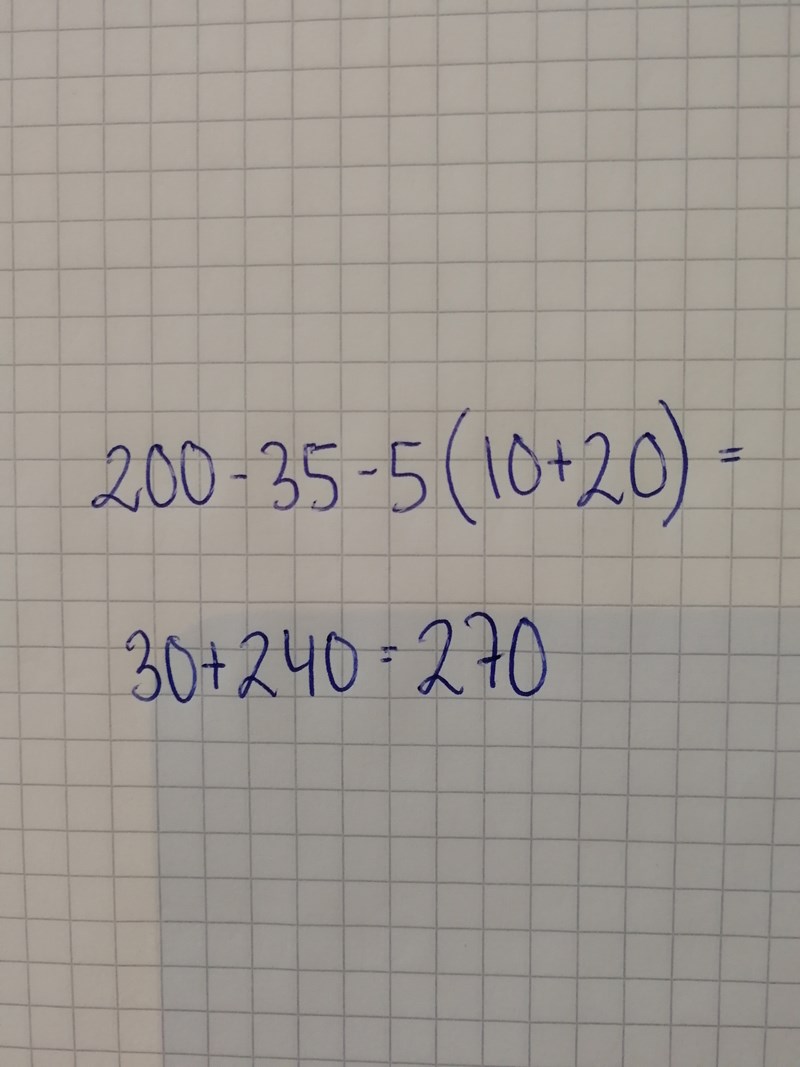 200-35-5(10+20)=
30+240=270